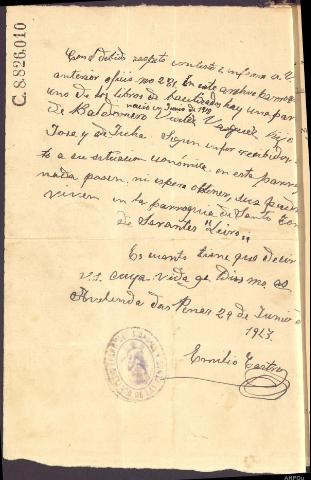 C.8.826,010
Con el debido respeto contesto e informo a V.
anterior oficio no 221. En este archivo parroq
uno de los libros de bautizados hay una par
nació en Junio de 1919
de Baldomero Vazquez hijo
Jose y de Supra informe recibido
to a su situacion económica, en esta parro
nada poseen, ni espera obtener, sus padr
viven en la parroquia de Santo Tom
de Serantes "Leiro"
Es cuanto tiene que decir
V.S. cuya vida ge Dios ms as
Avelenda das Penas 29 de Junio d
1943.
Emilio Castro
AHPOu